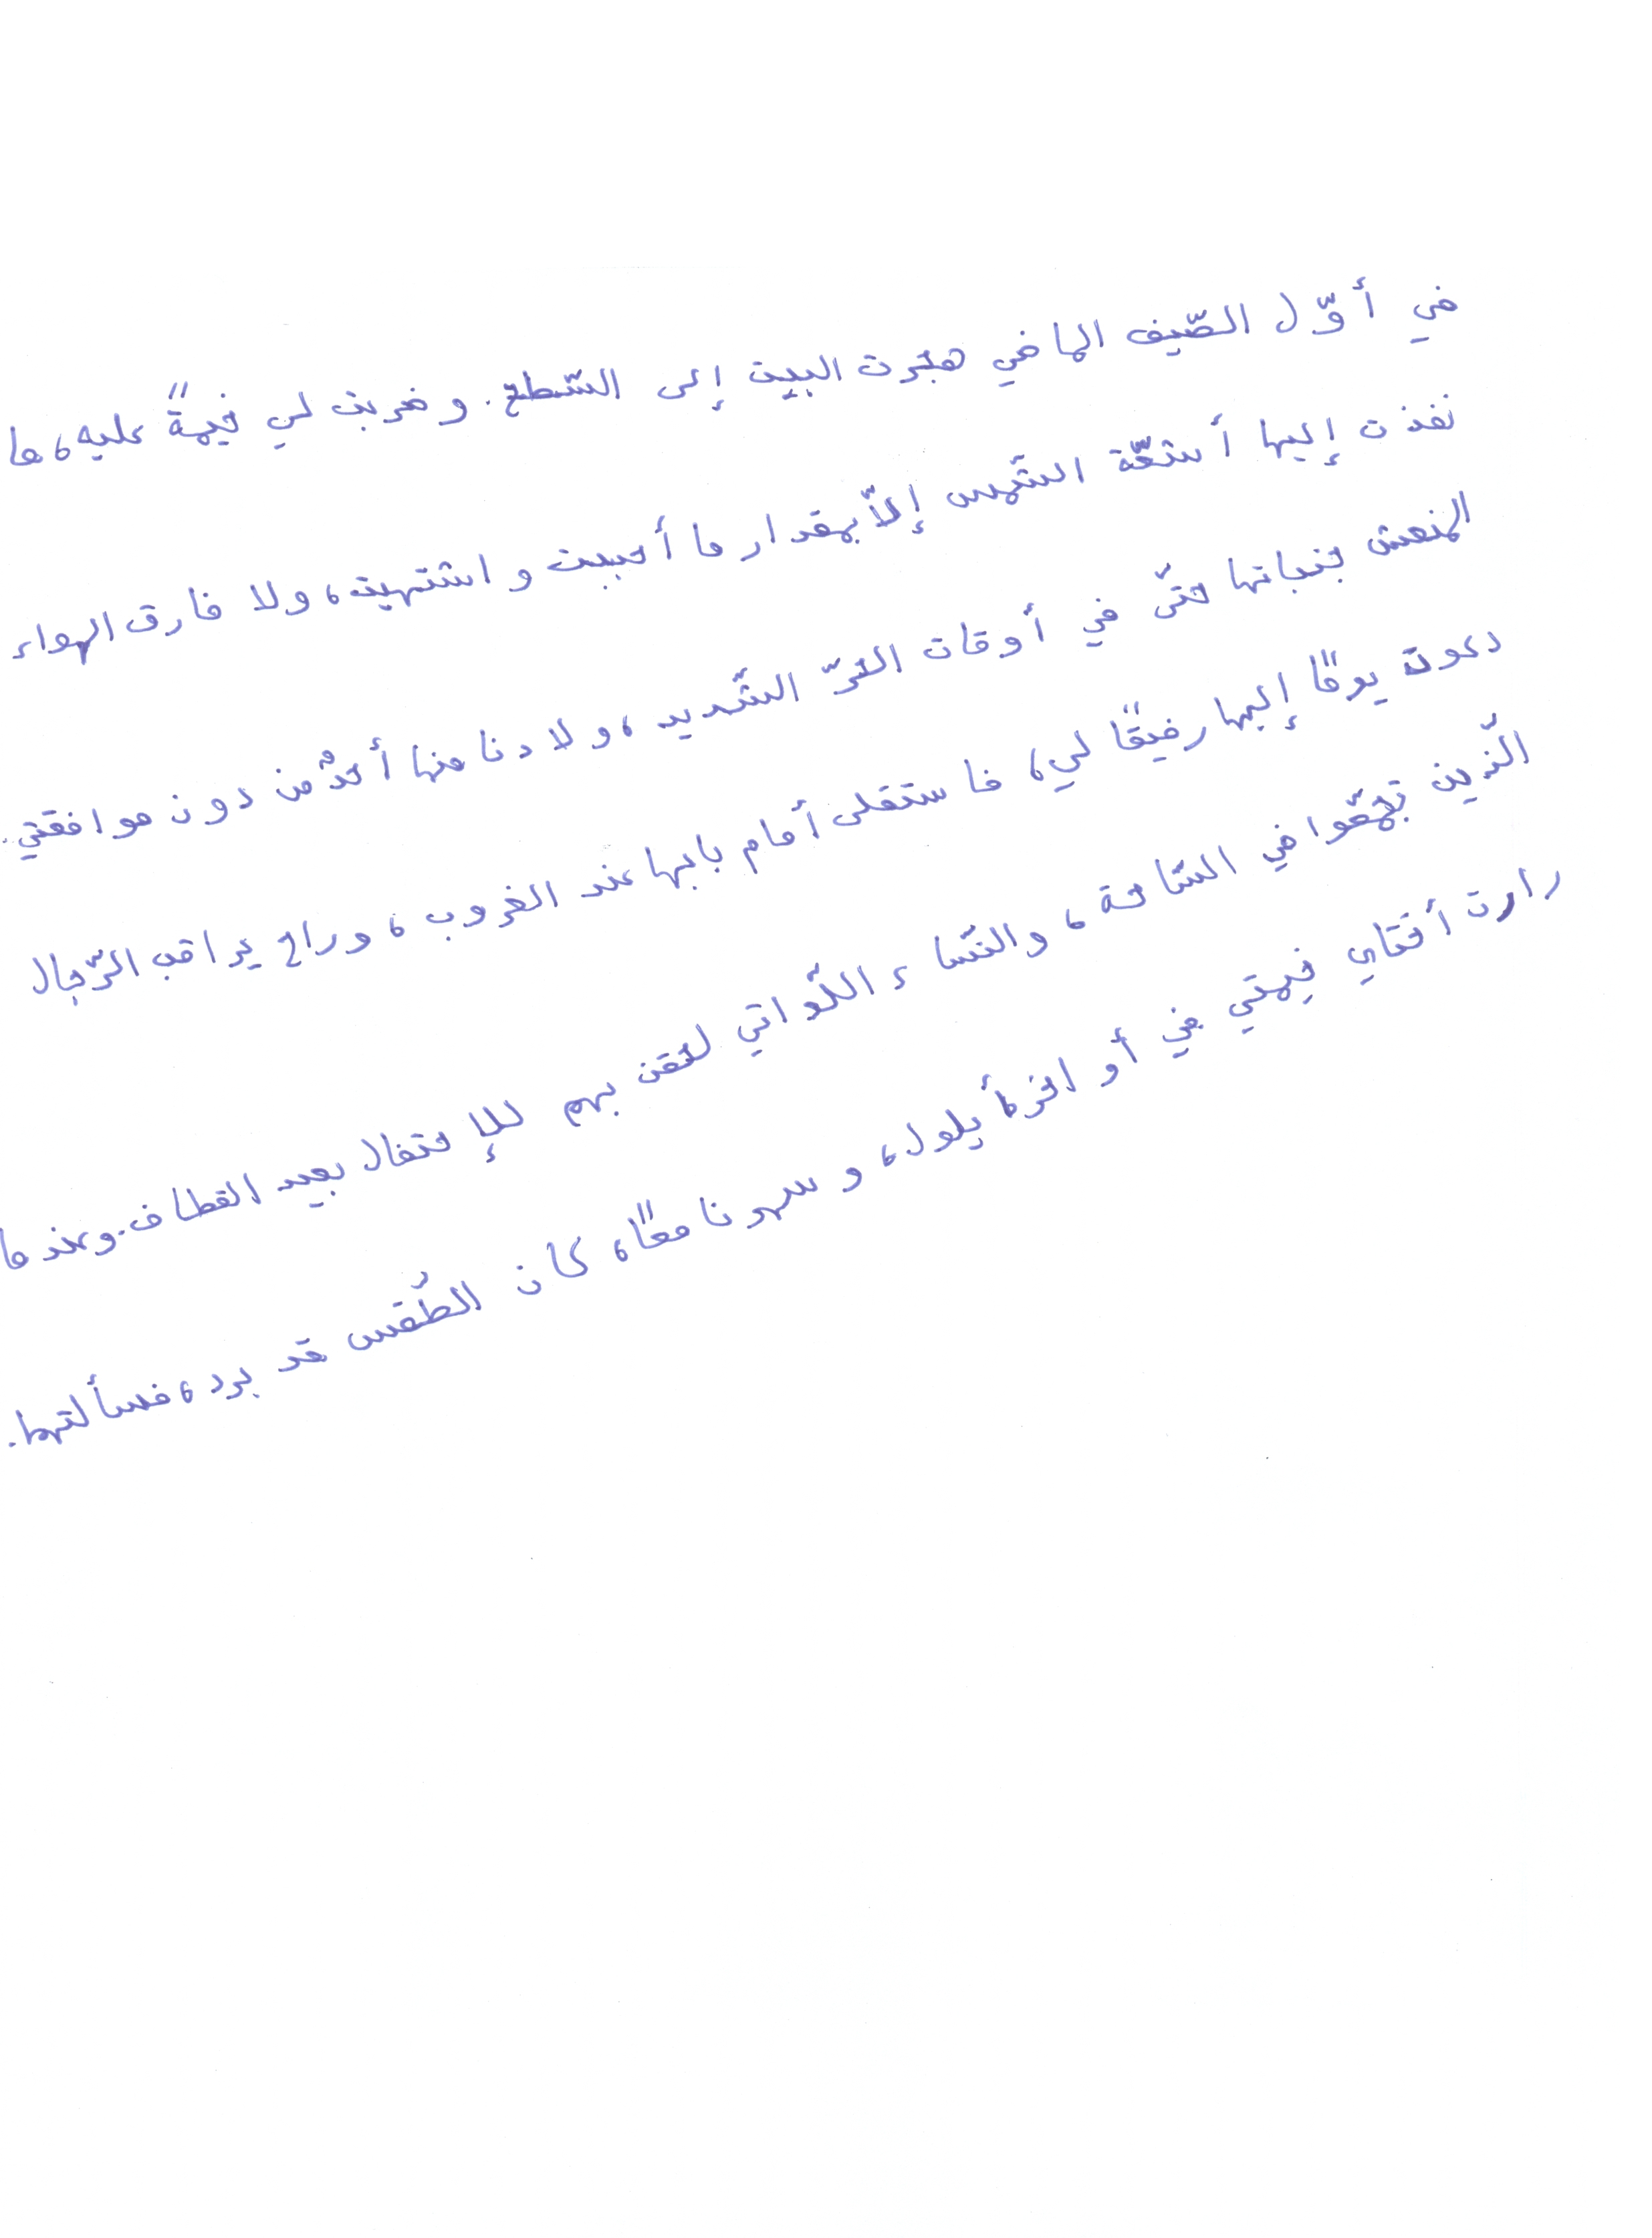 في أوّل الصّيف الماضي هجرت البيت إلى السّطح. وضربت لي خيمةً عليه، ما
نفذت إليها أشعّة الشّمس إلّا بمقدار ما أحببت واشتهيت، ولا فارق الهواء
المنعش جنباتها حتّى في أوقات الحرّ الشّديد، ولا دنا منها أحدٌ من دون موافقتي.
دعوت يومًا إليها رفيقًا لي، فاستقلى أمام بابها عند الغروب، وراح يراقب الرّجال
الّذين تجمّعوا في السّاحة، والنّساء اللّواتي لحقن بهم للإحتفال بعيد القطاف. وعندما
زارت أختاي خيمتي في أواخر أيلول، وسهرنا معًا، كان الطّقس قد برد، فسألتهما.